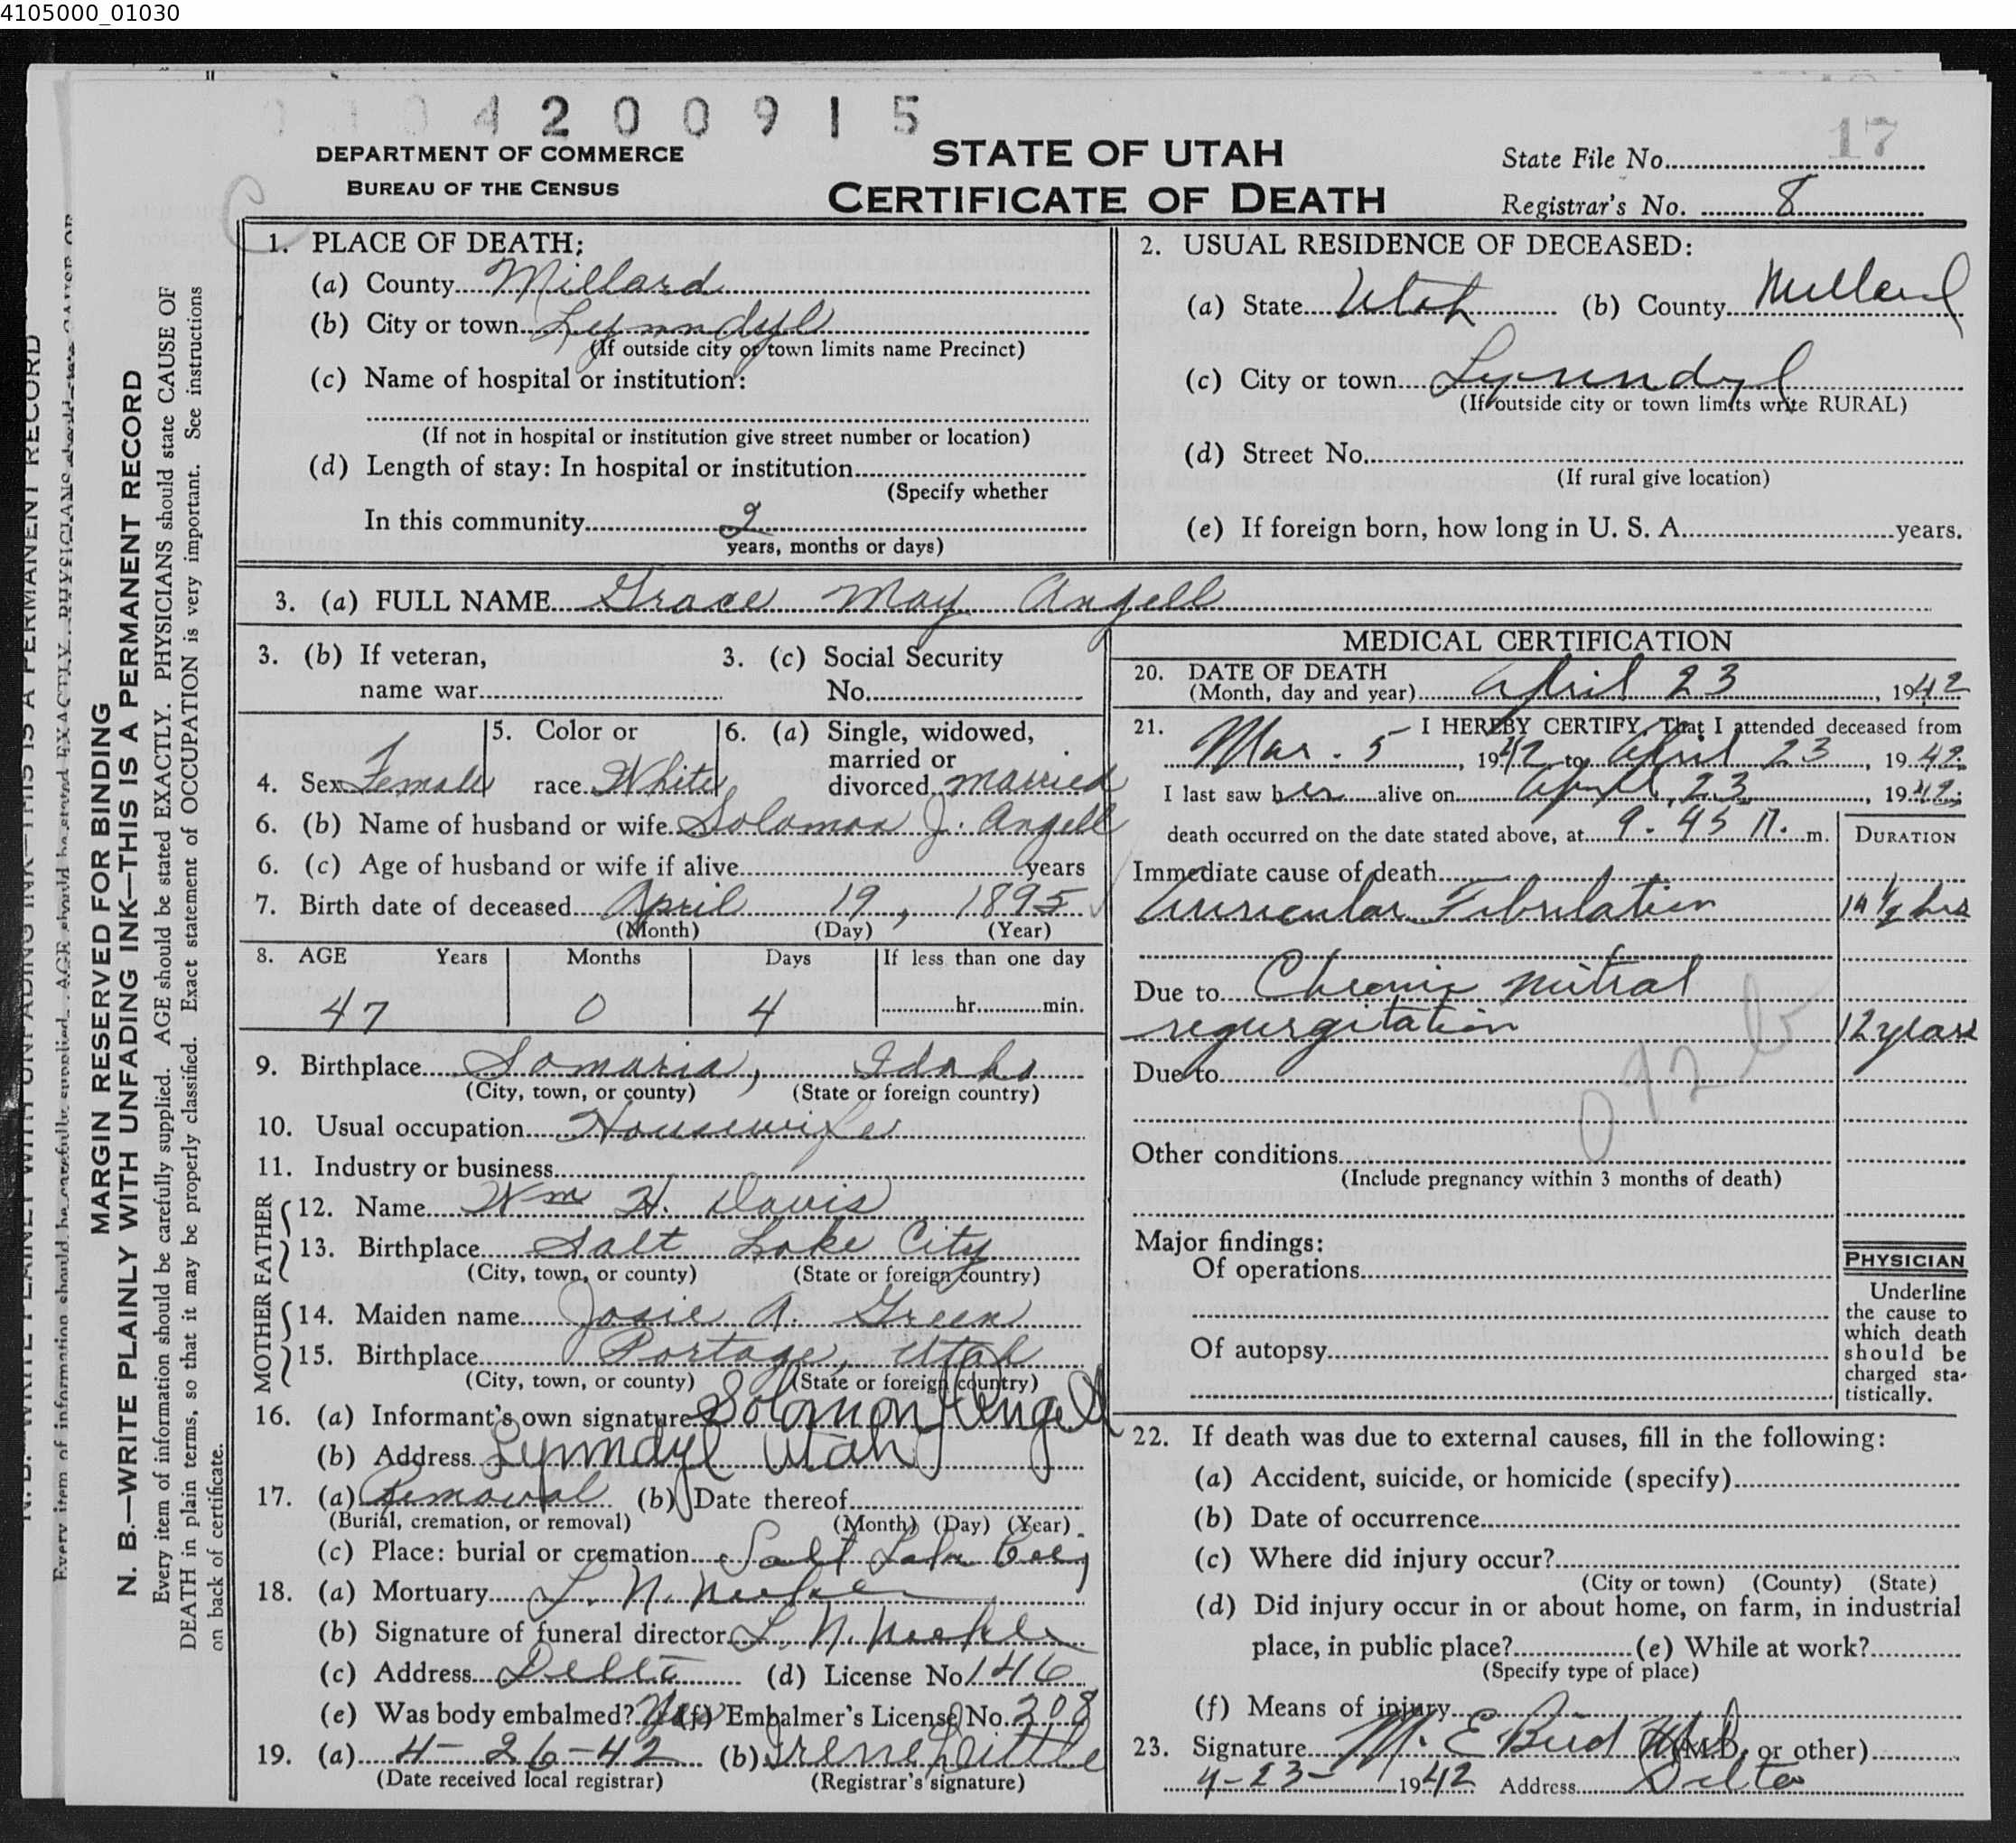 4105000_01030
4 2 0 0 9 1 5
DEPARTMENT OF COMMERCE
BUREAU OF THE CENSUS
STATE OF UTAH
CERTIFICATE OF DEATH
State File No. 17
Registrar's No. 8
MARGIN RESERVED FOR BINDING
N. B.—WRITE PLAINLY WITH UNFADING INK—THIS IS A PERMANENT RECORD
Every item of information should be carefully supplied. AGE should be stated EXACTLY. PHYSICIANS should state CAUSE OF
DEATH in plain terms, so that it may be properly classified. Exact statement of OCCUPATION is very important. See instructions
on back of certificate.
1. PLACE OF DEATH:
(a) County Millard
(b) City or town Lynndyl
(If outside city or town limits name Precinct)
(c) Name of hospital or institution:
(If not in hospital or institution give street number or location)
(d) Length of stay: In hospital or institution
(Specify whether
In this community 2
years, months or days)
2. USUAL RESIDENCE OF DECEASED:
(a) State Utah (b) County Millard
(c) City or town Lynndyl
(If outside city or town limits write RURAL)
(d) Street No.
(If rural give location)
(e) If foreign born, how long in U. S. A. years.
3. (a) FULL NAME Grace May Angell
3. (b) If veteran,
name war
3. (c) Social Security
No.
4. Sex Female
5. Color or
race White
6. (a) Single, widowed,
married or
divorced married
6. (b) Name of husband or wife Solomon J. Angell
6. (c) Age of husband or wife if alive years
7. Birth date of deceased April 19, 1895
(Month) (Day) (Year)
8. AGE Years Months Days If less than one day
47 0 4 hr. min.
9. Birthplace Somaria, Idaho
(City, town, or county) (State or foreign country)
10. Usual occupation Housewife
11. Industry or business
FATHER
12. Name Wm H. Davis
13. Birthplace Salt Lake City
(City, town, or county) (State or foreign country)
MOTHER
14. Maiden name Josie A. Green
15. Birthplace Portage, Utah
(City, town, or county) (State or foreign country)
16. (a) Informant's own signature Solomon J Angell
(b) Address Lynndyl Utah
17. (a) Removal (b) Date thereof
(Burial, cremation, or removal) (Month) (Day) (Year)
(c) Place: burial or cremation Salt Lake City
18. (a) Mortuary L. N.
(b) Signature of funeral director L. N.
(c) Address Delta (d) License No. 146
(e) Was body embalmed? Yes (f) Embalmer's License No. 208
19. (a) 4-26-42 (b) Irene
(Date received local registrar) (Registrar's signature)
MEDICAL CERTIFICATION
20. DATE OF DEATH
(Month, day and year) April 23, 1942
21. I HEREBY CERTIFY, That I attended deceased from
Mar. 5, 1942 to April 23, 1942
I last saw her alive on April, 23, 1942;
death occurred on the date stated above, at 9.45 m.
DURATION
Immediate cause of death
Auricular Fibrilation 14 1/2 hrs
Due to Chronic mitral
regurgitation 12 years
Due to
092 b
Other conditions
(Include pregnancy within 3 months of death)
Major findings:
Of operations
Of autopsy
PHYSICIAN
Underline
the cause to
which death
should be
charged sta-
tistically.
22. If death was due to external causes, fill in the following:
(a) Accident, suicide, or homicide (specify)
(b) Date of occurrence
(c) Where did injury occur?
(City or town) (County) (State)
(d) Did injury occur in or about home, on farm, in industrial
place, in public place? (e) While at work?
(Specify type of place)
(f) Means of injury
23. Signature M. E Bird M.D. (M.D. or other)
4-23- 1942 Address Delta